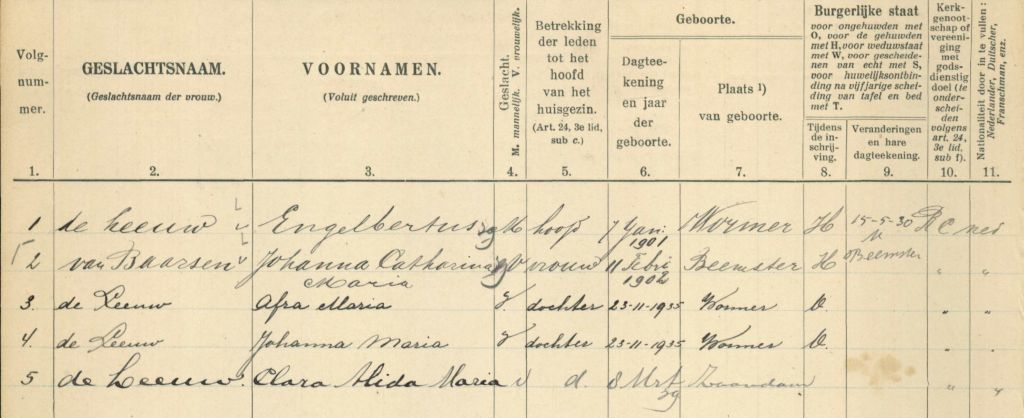 Volg-
nummer.
GESLACHTSNAAM.
(Geslachtsnaam der vrouw.)
VOORNAMEN.
(Voluit geschreven.)
Geslacht.
M. mannelijk. V. vrouwelijk.
Betrekking
der leden
tot het
hoofd
van het
huisgezin.
(Art. 24, 3e lid,
sub c.)
Geboorte.
Dagtee-
kening
en jaar
der
geboorte.
Plaats ¹)
van geboorte.
Burgerlijke staat
voor ongehuwden met
O, voor de gehuwden
met H, voor weduwstaat
met W, voor gescheide-
nen van echt met S,
voor huwelijksontbin-
ding na vijfjarige schei-
ding van tafel en bed
met T.
Tijdens
de in-
schrij-
ving.
Veranderingen
en hare
dagteekening.
Kerk-
genoot-
schap of
vereeni-
ging met
gods-
dienstig
doel (te
onder-
schei-
den
volgens
art. 24,
3e lid,
sub f).
Nationaliteit door in te vullen:
Nederlander, Duitscher,
Franschman, enz.
1. 2. 3. 4. 5. 6. 7. 8. 9. 10. 11.
1 de Leeuw Engelbertus M hoofd 7 Jan 1901 Wormer H 15-5-30 R C ned
2 van Baarsen Johanna Catharina Maria V vrouw 11 Febr 1902 Beemster H Beemster " "
3. de Leeuw Afra Maria V. dochter 23-11-1935 Wormer O. " "
4. de Leeuw Johanna Maria V dochter 23-11-1935 Wormer O. " "
5 de Leeuw. Clara Alida Maria V d. 8 Mrt 39 Zaandam " "